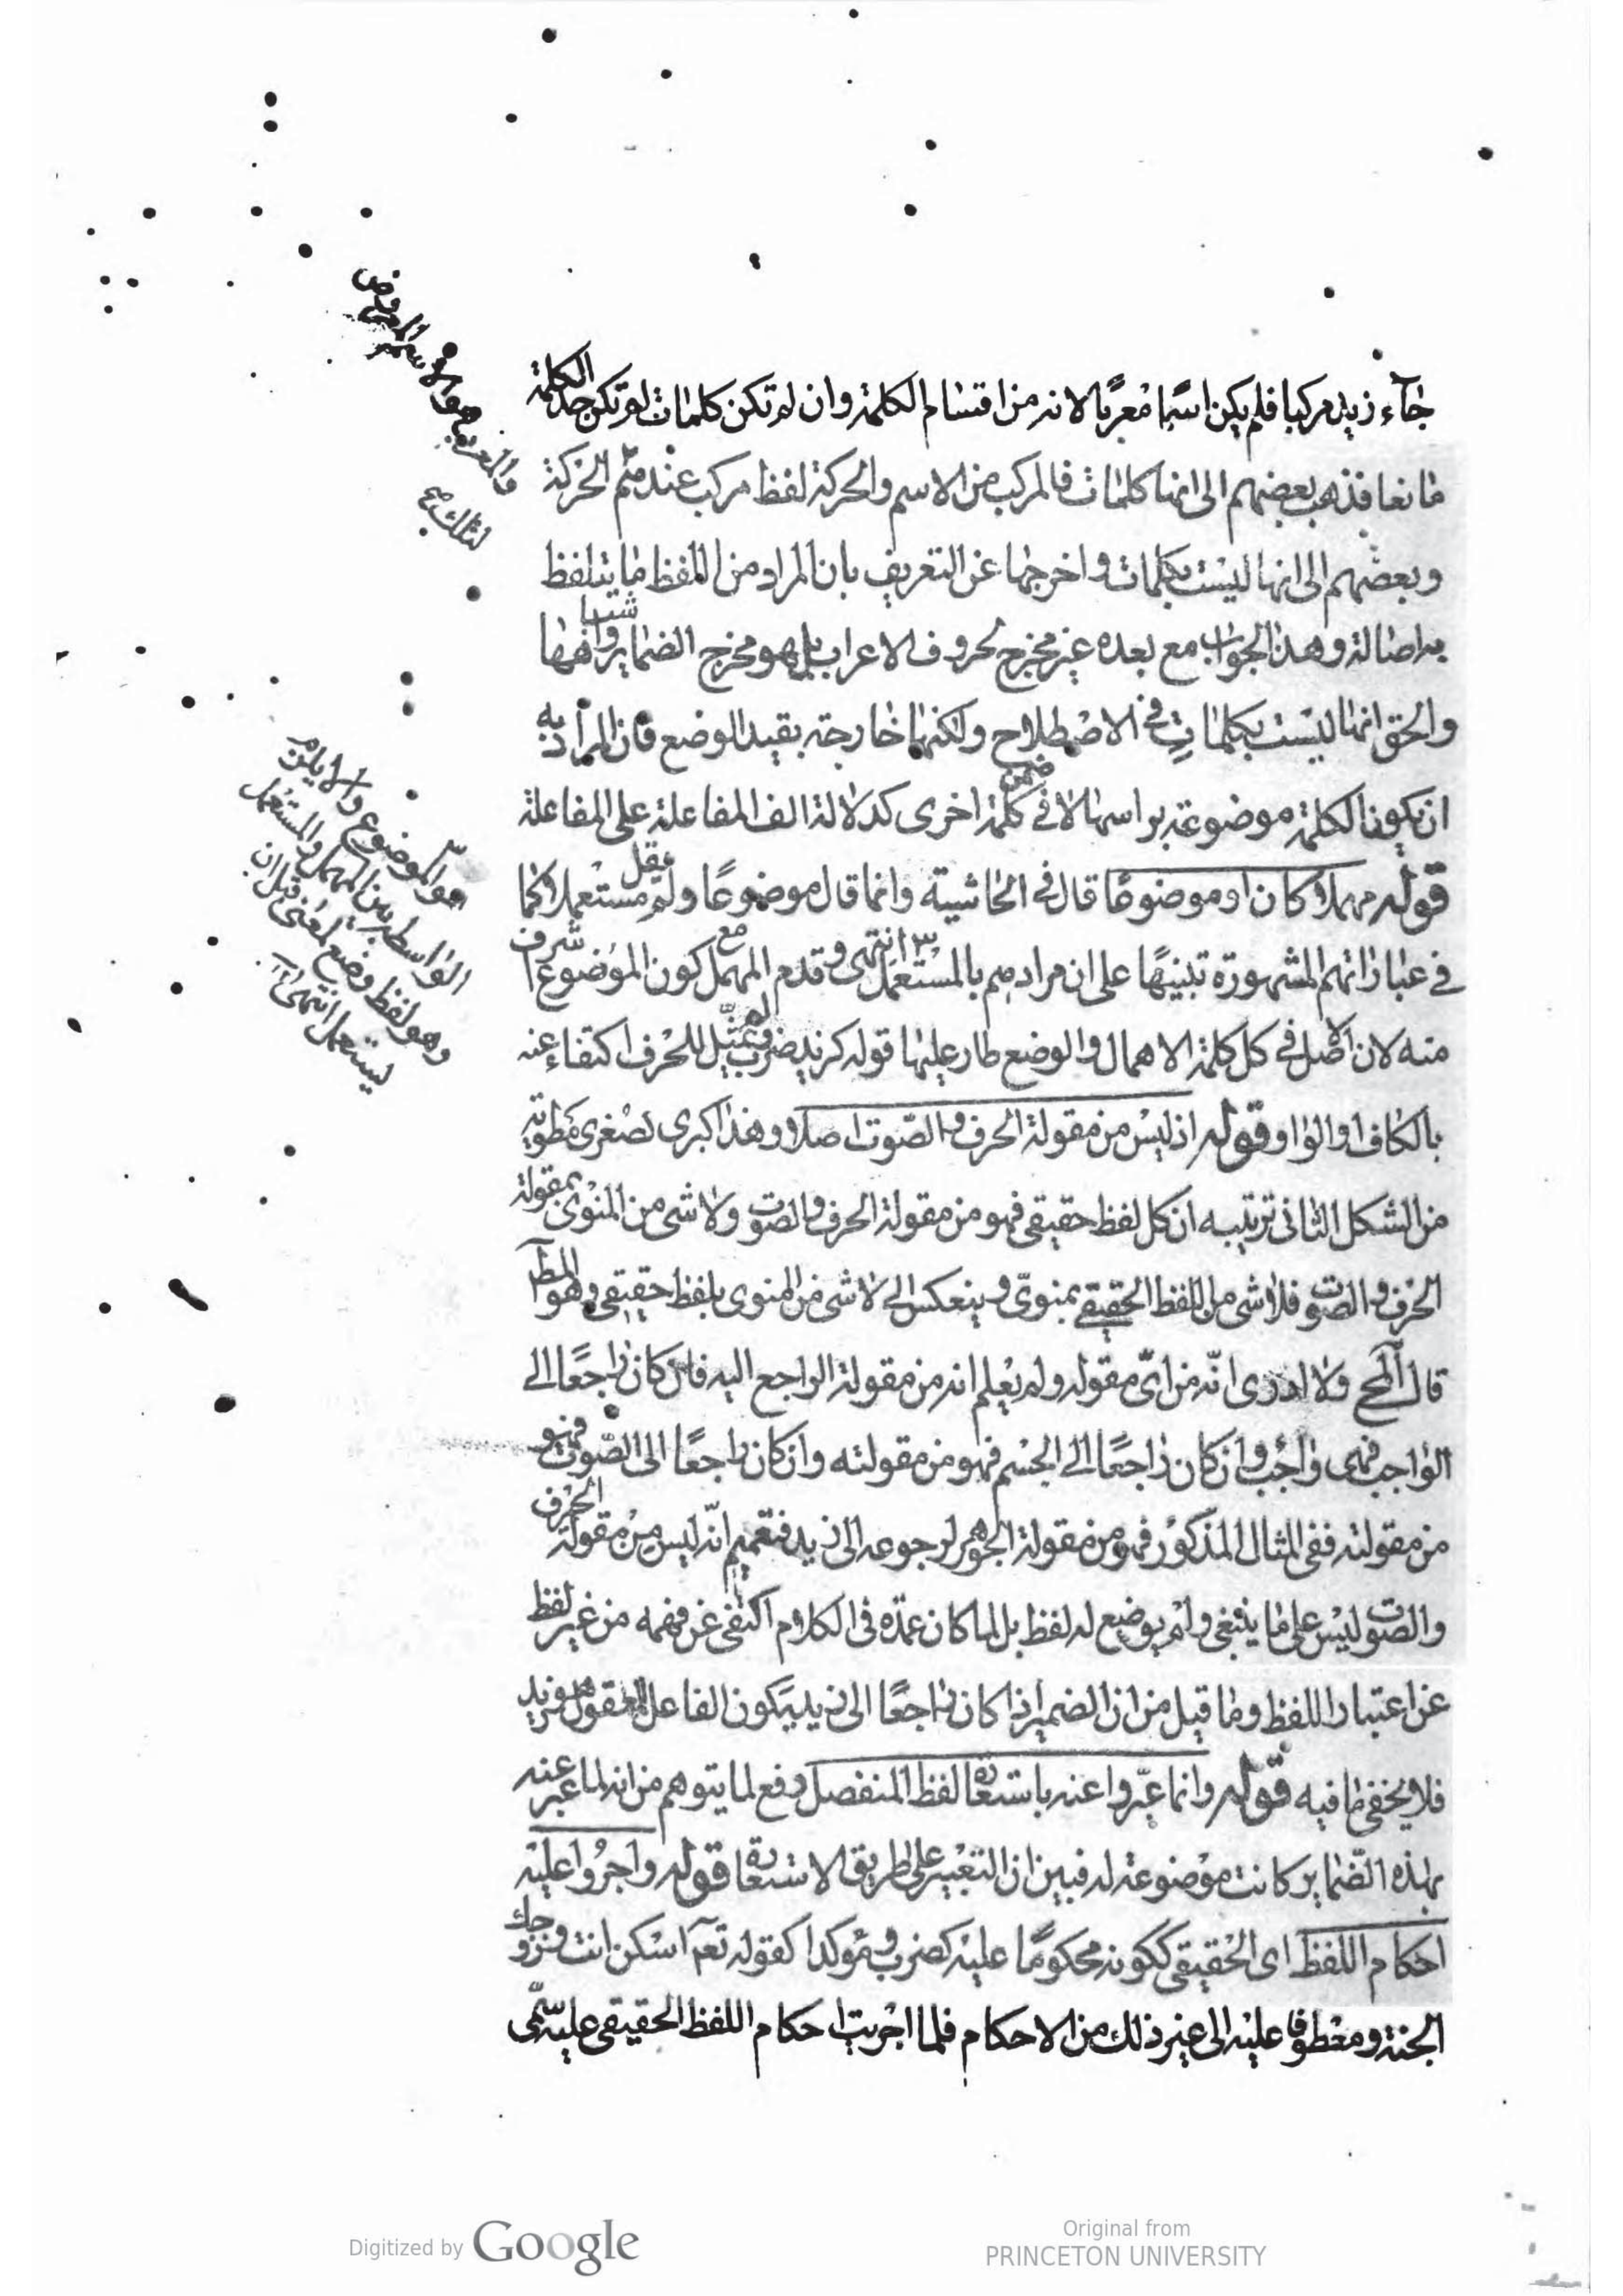 جآء زيد مركبا فلم يكن اسما معربا لانه من اقسام الكلمة وان لم تكن كلمات لم تكن حد الكلمة
مانعا فذهب بعضهم الى انها كلمات فالمركب من الاسم والحركة لفظ مركب عندهم الحركة
وبعضهم الى انها ليست بكلمات واخرجها عن التعريف بان المراد من اللفظ ما يتلفظ
به اصالة وهذا الجواب مع بعده غير مخرج لحروف الاعراب بل هو مخرج الضماير واشباهها
والحق انها ليست بكلمات في الاصطلاح ولكنها خارجة بقيد الوضع فان المراد به
ان يكون الكلمة موضوعة براسها لا في ضمن كلمة اخرى كدلالة الف المفاعلة على المفاعلة
قوله مهملا كان او موضوعا قال في الحاشية وانما قال موضوعا ولم يقل مستعملا كما
في عباراتهم المشهورة تنبيها على ان مرادهم بالمستعمل انتهى وقدم المهمل مع كون الموضوع اشرف
منه لان الاصل في كل كلمة الاهمال والوضع طار عليها قوله كزيد وضرب لم يمثل للحرف اكتفاء عنه
بالكاف او الواو وقوله اذ ليس من مقولة الحرف والصوت اصلا وهذا كبرى لصغرى مطوية
من الشكل الثاني ترتيبه ان كل لفظ حقيقي فهو من مقولة الحرف والصوت ولا شى من المنوى بمقولة
الحرف والصوت فلا شى من اللفظ الحقيقي بمنوى وينعكس الى لا شى من المنوى بلفظ حقيقي وهو المط
قال المح ولا ادرى انه من اى مقوله ولم يعلم انه من مقولة الراجع اليه فان كان راجعا الى
الواجب فهى واجب وان كان راجعا الى الجسم فهو من مقولته وان كان راجعا الى الصوت فهو
من مقولته ففى المثال المذكور فهو من مقولة الجوهر لرجوعه الى زيد فتعميم انه ليس من مقولة الحرف
والصوت ليس على ما ينبغى ولم يوضع له لفظ بل لما كان عمدة فى الكلام اكتفى عن فهمه من غير لفظ
عن اعتبار اللفظ وما قيل من ان الضمير اذا كان راجعا الى زيد يكون الفاعل المعقول هو زيد
فلا يخفى ما فيه قوله وانما عبروا عنه باستعارة لفظ المنفصل دفع لما يتوهم من انه لما عبر عنه
بهذه الضماير كانت موضوعة له فبين ان التعبير على طريق الاستعارة قوله واجروا عليه
احكام اللفظ اى الحقيقي ككونه محكوما عليه كضرب ومؤكدا كقوله تعا اسكن انت وزوجك
الجنة ومعطوفا عليه الى غير ذلك من الاحكام فلما اجريت احكام اللفظ الحقيقي عليه سمى
هو الموضوع والا يلزم
الواسطة بين المهمل والمستعمل
وهو لفظ وضع لمعنى قبل ان
يستعمل انتهى
Digitized by Google
Original from
PRINCETON UNIVERSITY